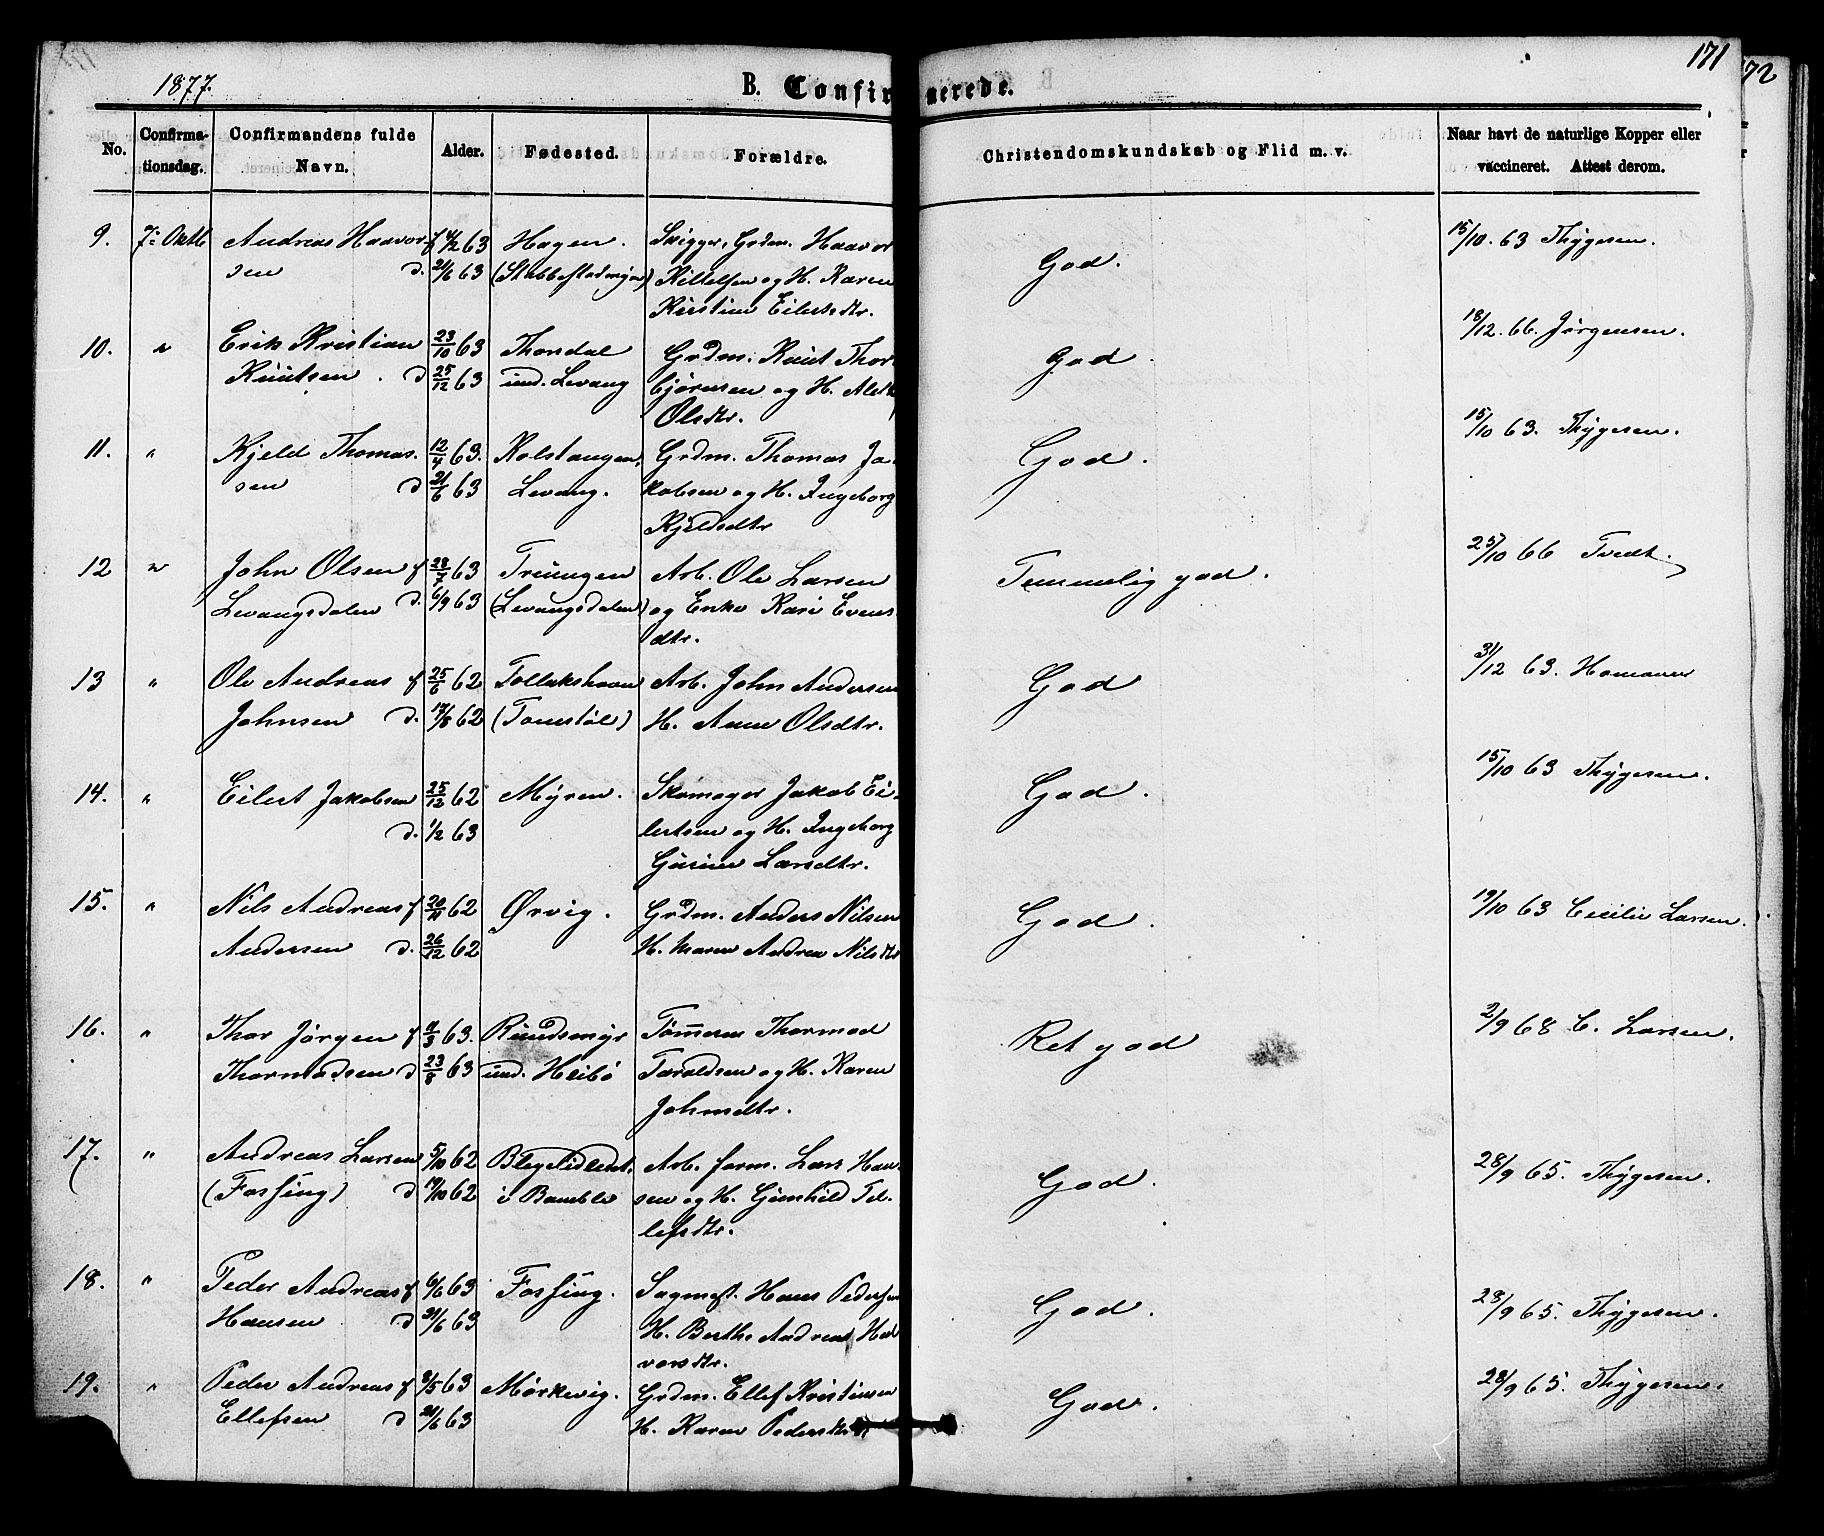 1877.
B. Confirmerede.
171
172
No.
Confirma-
tionsdag.
Confirmandens fulde
Navn.
Alder.
Fødested.
Forældre.
Christendomskundskab og Flid m. v.
Naar havt de naturlige Kopper eller
vaccineret. Attest derom.
9. 7: Oktb Andreas Haavor- f 4/2 63 Hagen. Grdm. Haavor God. 15/10. 63 Thygesen.
sen d. 21/6 63 (Stabbestadmyra) Kittelsen og H. Karen
Kirstine Eilertsdtr.
10. " Erik Kristian 23/10 63 Thorsdal Grdm. Knut Thor God 18/12. 66. Jørgensen.
Knutsen. d 25/12 63 und. Levang bjørnsen og H.
Olsdtr.
11. " Kjeld Thomas- 12/4 63. Rolstangen, Grdm. Thomas Ja- God. 15/10 63. Thygesen.
sen d 21/6 63 Levang. kobsen og H. Ingeborg
Kjeldsdtr
12 " John Olsen f 28/7 63 Triangen Arb. Ole Larsen Temmelig god. 25/10 66 Tvedt.
Levangsdalen d. 6/9 63 (Levangsdalen) og Enke Kari Evens
dtr.
13 " Ole Andreas f 25/6 62 Tollakshavn Arb. John Andersen God 31/12 63. Homann
Johnsen d. 17/8 62 (Tonestøl) H. Anne Olsdtr.
14. " Eilert Jakobsen 25/12 62 Myren. Skomager Jakob Ei- God. 15/10 63 Thygesen.
d. 1/2 63 lertsen og H. Ingeborg
Gurine Larsdtr.
15. " Nils Andreas f 20/11 62 Ørvig. Grdm. Anders Nilsen God. 19/10 63 Cecilie Larsen.
Andersen d. 26/12 62 H. Maren Andrea Nilsdtr
16. " Thor Jørgen f 11/3 63. Rundsmyr Tømmerm Thormod Ret god 2/9 68 C. Larsen.
Thormodsen d 23/8 63 und. Heibø Taraldsen og H. Karen
Johnsdtr.
17. " Andreas Larsen 5/10 62 Arb. form. Lars Han- God. 28/9 65. Thygesen.
(Fossing) d 19/10 62 i Bamble sen og H. Gunhild Tel-
lefsdtr.
18. " Peder Andreas f 6/6 63 Fossing. Sagmest. Hans Pedersen God. 28/9 65. Thygesen.
Hansen d 21/6 63 H. Berthe Andrea Hal
vorsdtr.
19. " Peder Andreas f 8/5 63 Mørkevig. Grdm. Ellef Kristensen God. 28/9 65. Thygesen.
Ellefsen d 21/6 63 H. Karen Pedersdtr